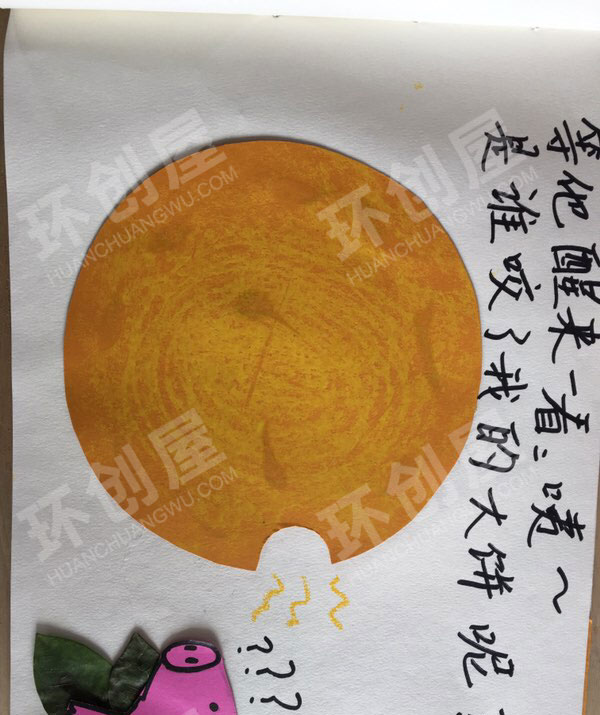 等他醒来一看:咦~
是谁咬了我的大饼呢
???
环创屋
HUANCHUANGWU.COM
环创屋
HUANCHUANGWU.COM
环创屋
HUANCHUANGWU.COM
环创屋
HUANCHUANGWU.COM